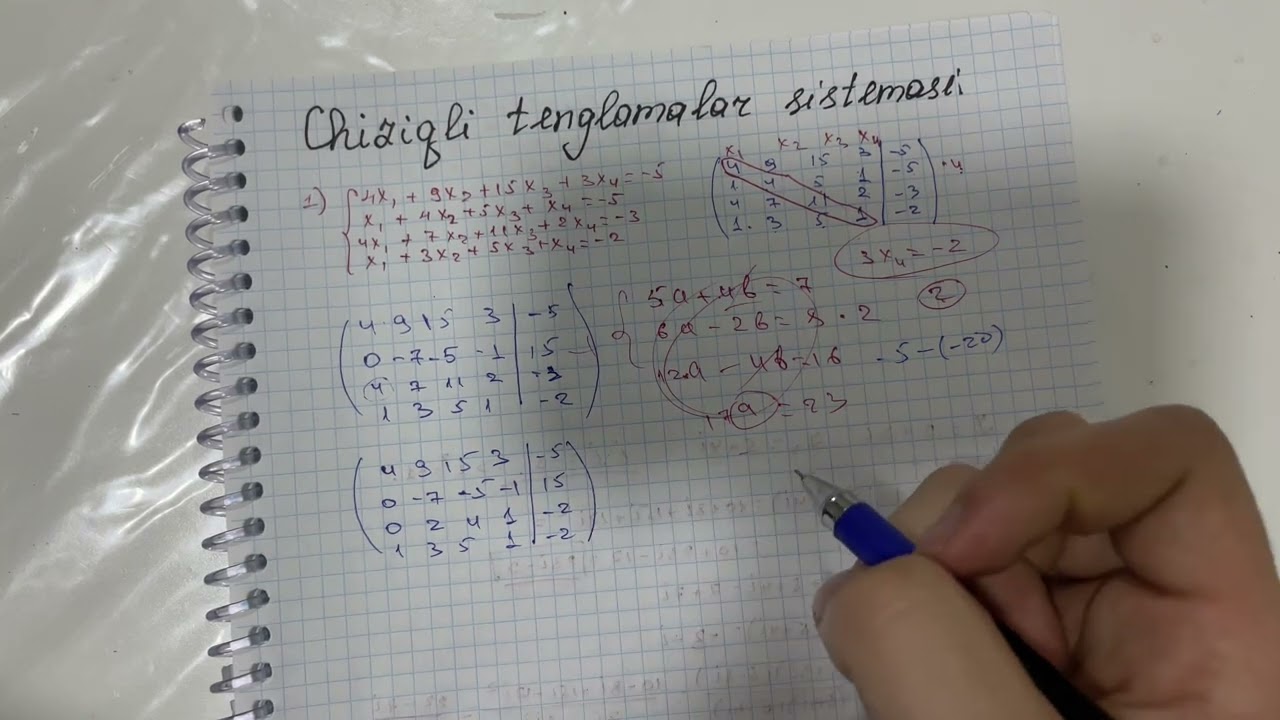 Chiziqli tenglamalar sistemasi.
1) 4x₁ + 9x₂ + 15x₃ + 3x₄ = -5
x₁ + 4x₂ + 5x₃ + x₄ = -5
4x₁ + 7x₂ + 11x₃ + 2x₄ = -3
x₁ + 3x₂ + 5x₃ + x₄ = -2
x₁ x₂ x₃ x₄
4 9 15 3 | -5
1 4 5 1 | -5 · 4
4 7 11 2 | -3
1 3 5 1 | -2
3x₄ = -2
2
4 9 15 3 | -5
0 -7 -5 -1 | 15
4 7 11 2 | -3
1 3 5 1 | -2
5a + 4b = 7
6a - 2b = 8 · 2
12a - 4b = 16
17a = 23
-5 - (-20)
4 9 15 3 | -5
0 -7 -5 -1 | 15
0 2 4 1 | -2
1 3 5 1 | -2